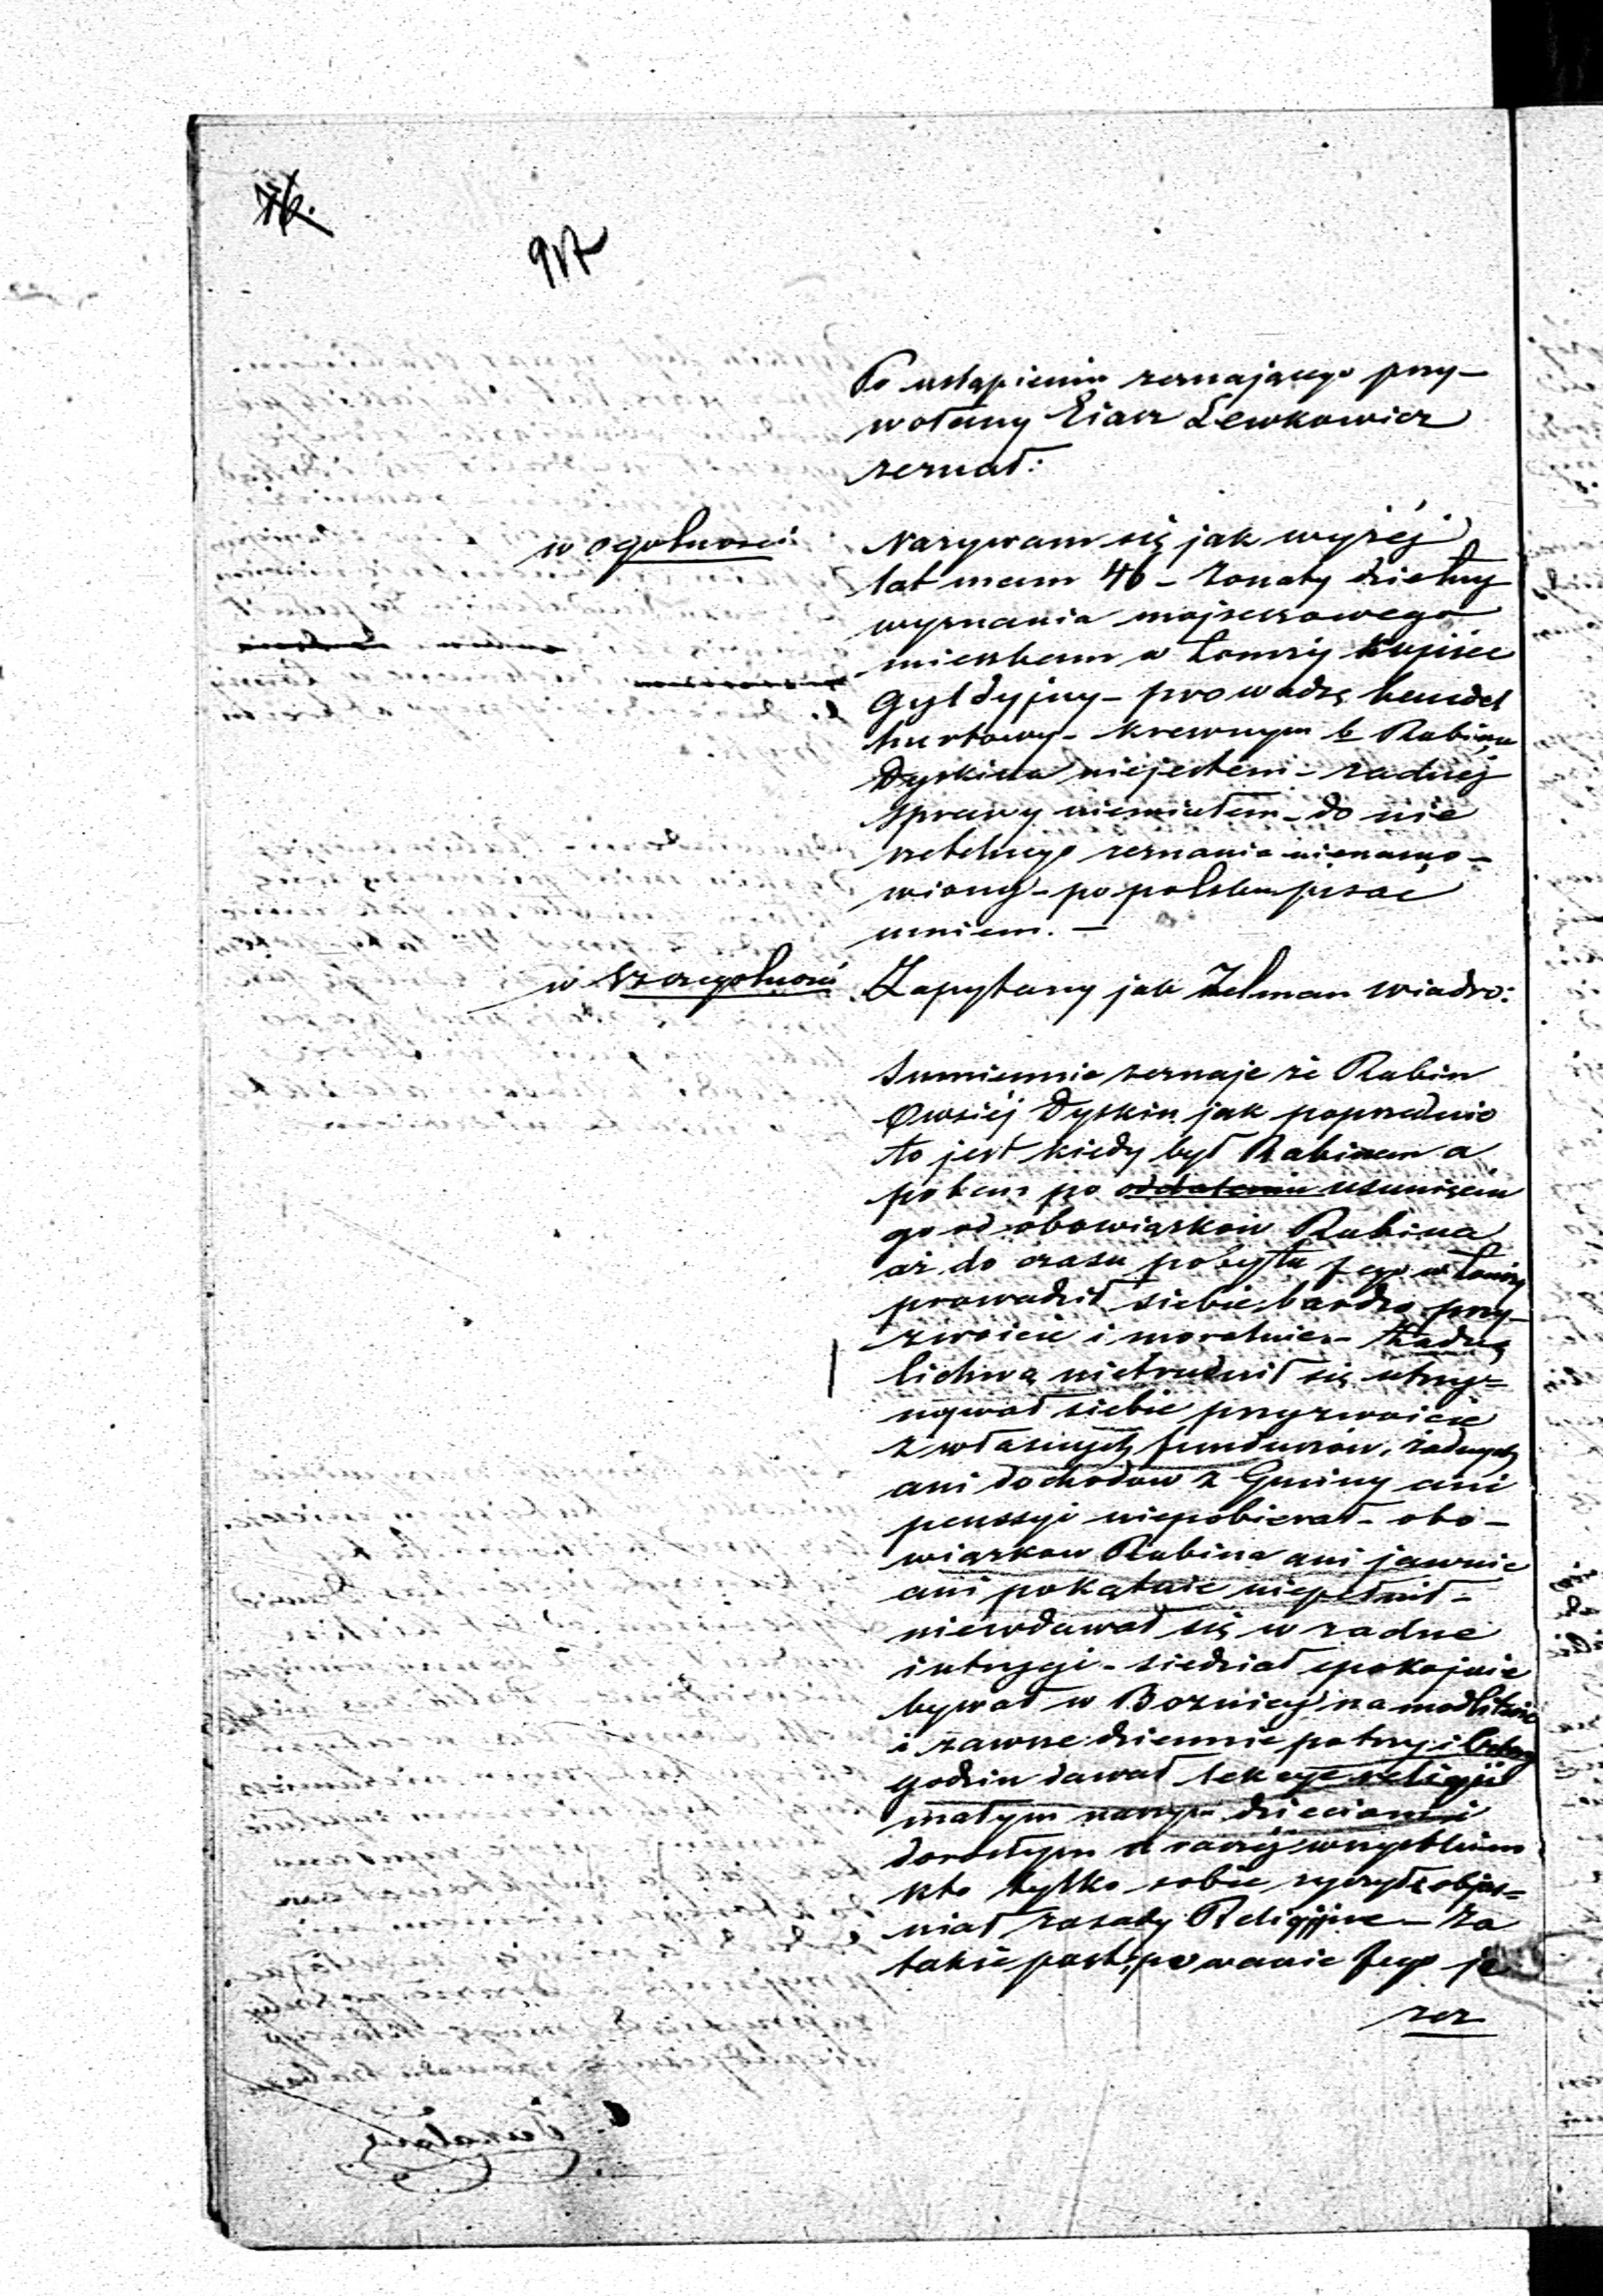 76.
Po ustąpieniu zeznającego przy-
wołany Eiasz Lewkowicz
zeznał:
w ogolnosci
Nazywam się jak wyżéj
lat mam 46 – żonaty dzietny
wyznania mojżeszowego
mieszkam w Łomży kupiec
Gyldyjny – prowadzę handel
hurtowy – krewnym b Rabina
Dyskina niejestem – żadnéj
sprawy niemiałem – do nie
rzetelnego zeznania nienamo-
wiony – po polsku pisac
umiem. –
w szczegolnosci
Zapytany jak Zelman Wiadro:
Sumiennie zeznaje że Rabin
Owsiéj Dyskin jak poprzednio
to jest kiedy był Rabinem a
potem po oddaleniu usunięciu
go od obowiązków Rabina
aż do czasu pobytu jego w Łomży
prowadził siebie bardzo przy-
zwoicie i moralnie – żadną
lichwą nietrudnił się utrzy=
mywał siebie przyzwoicie
z własnych funduszów, żadnych
ani dochodow z Gminy ani
penssyi niepobierał – obo-
wiązkow Rabina ani jawnie
ani pokątnie niepełnił –
niewdawał się w zadne
intrygi – siedział spokojnie
bywał w Boznicy na modlitwie
i zawsze dziennie po trzy i cztery
godzin dawał lekcye religii
małym naszym dzieciom i
dorosłym a raczéj wszystkim
kto tylko sobie życzył objas=
niał zasady Religijne – Za
takie postępowanie Jego je
zez